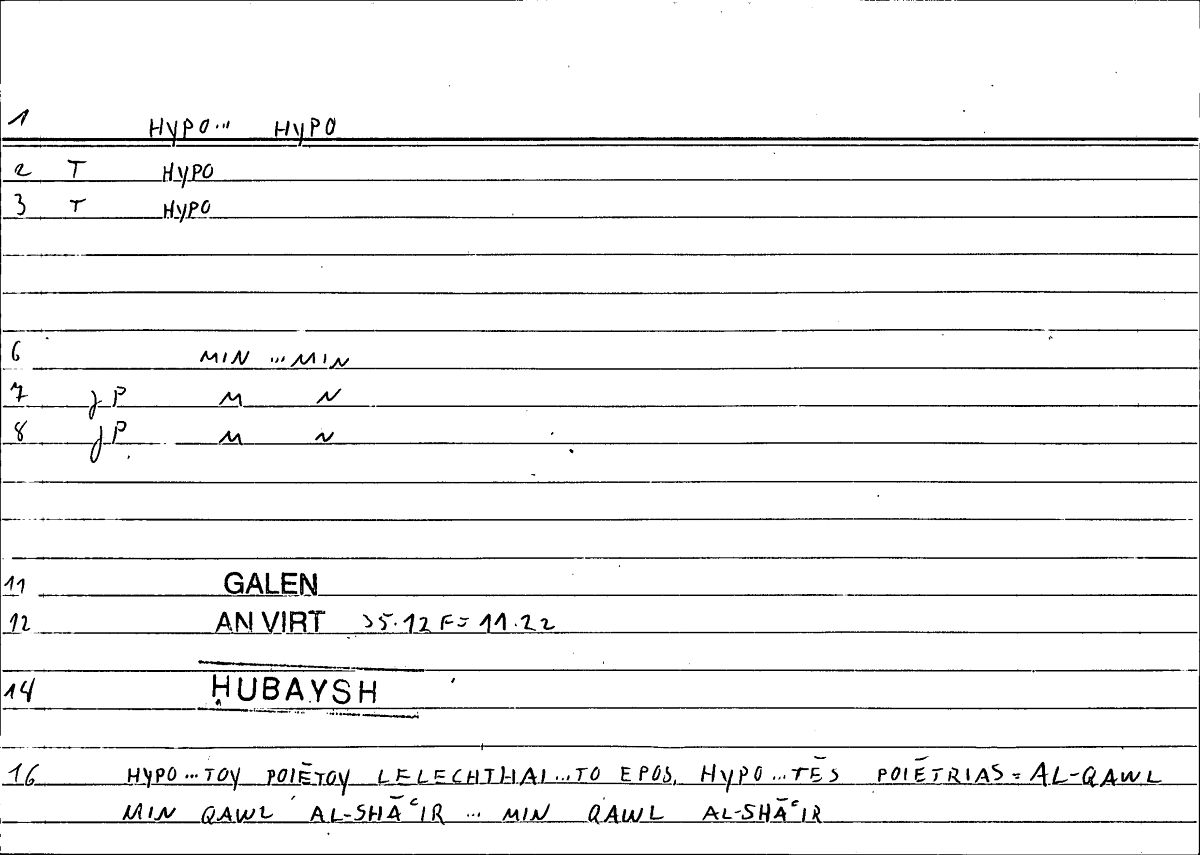 1 HYPO... HYPO
2 T HYPO
3 T HYPO
6 MIN ... MIN
7 JP M N
8 JP M N
11 GALEN
12 AN VIRT 35.12 F = 11.22
14 ḤUBAYSH
16 HYPO ... TOY POIĒTOY LELECHTHAI ... TO EPOS, HYPO ... TĒS POIĒTRIAS = AL-QAWL
MIN QAWL AL-SHĀʿIR ... MIN QAWL AL-SHĀʿIR